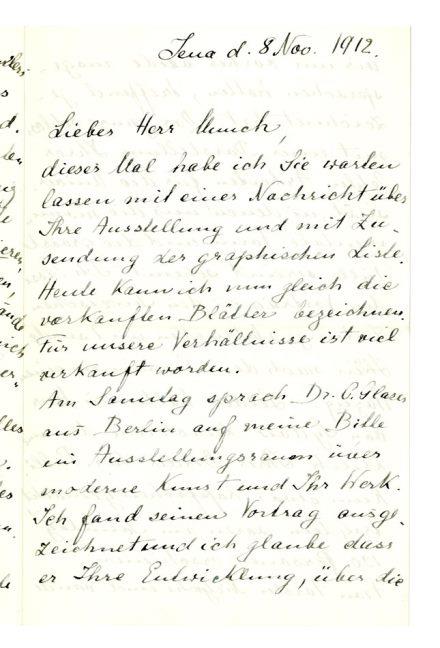 Jena d. 8 Nov. 1912.
Lieber Herr Munch,
dieses Mal habe ich Sie warten
lassen mit einer Nachricht über
Ihre Ausstellung und mit Zu-
sendung der graphischen Liste.
Heute kann ich nun gleich die
verkauften Blätter bezeichnen.
Für unsere Verhältnisse ist viel
verkauft worden.
Am Sonntag sprach Dr. C. Glaser
aus Berlin auf meine Bitte
im Ausstellungsraum über
moderne Kunst und Ihr Werk.
Ich fand seinen Vortrag ausge-
zeichnet und ich glaube dass
er Ihre Entwicklung, über die